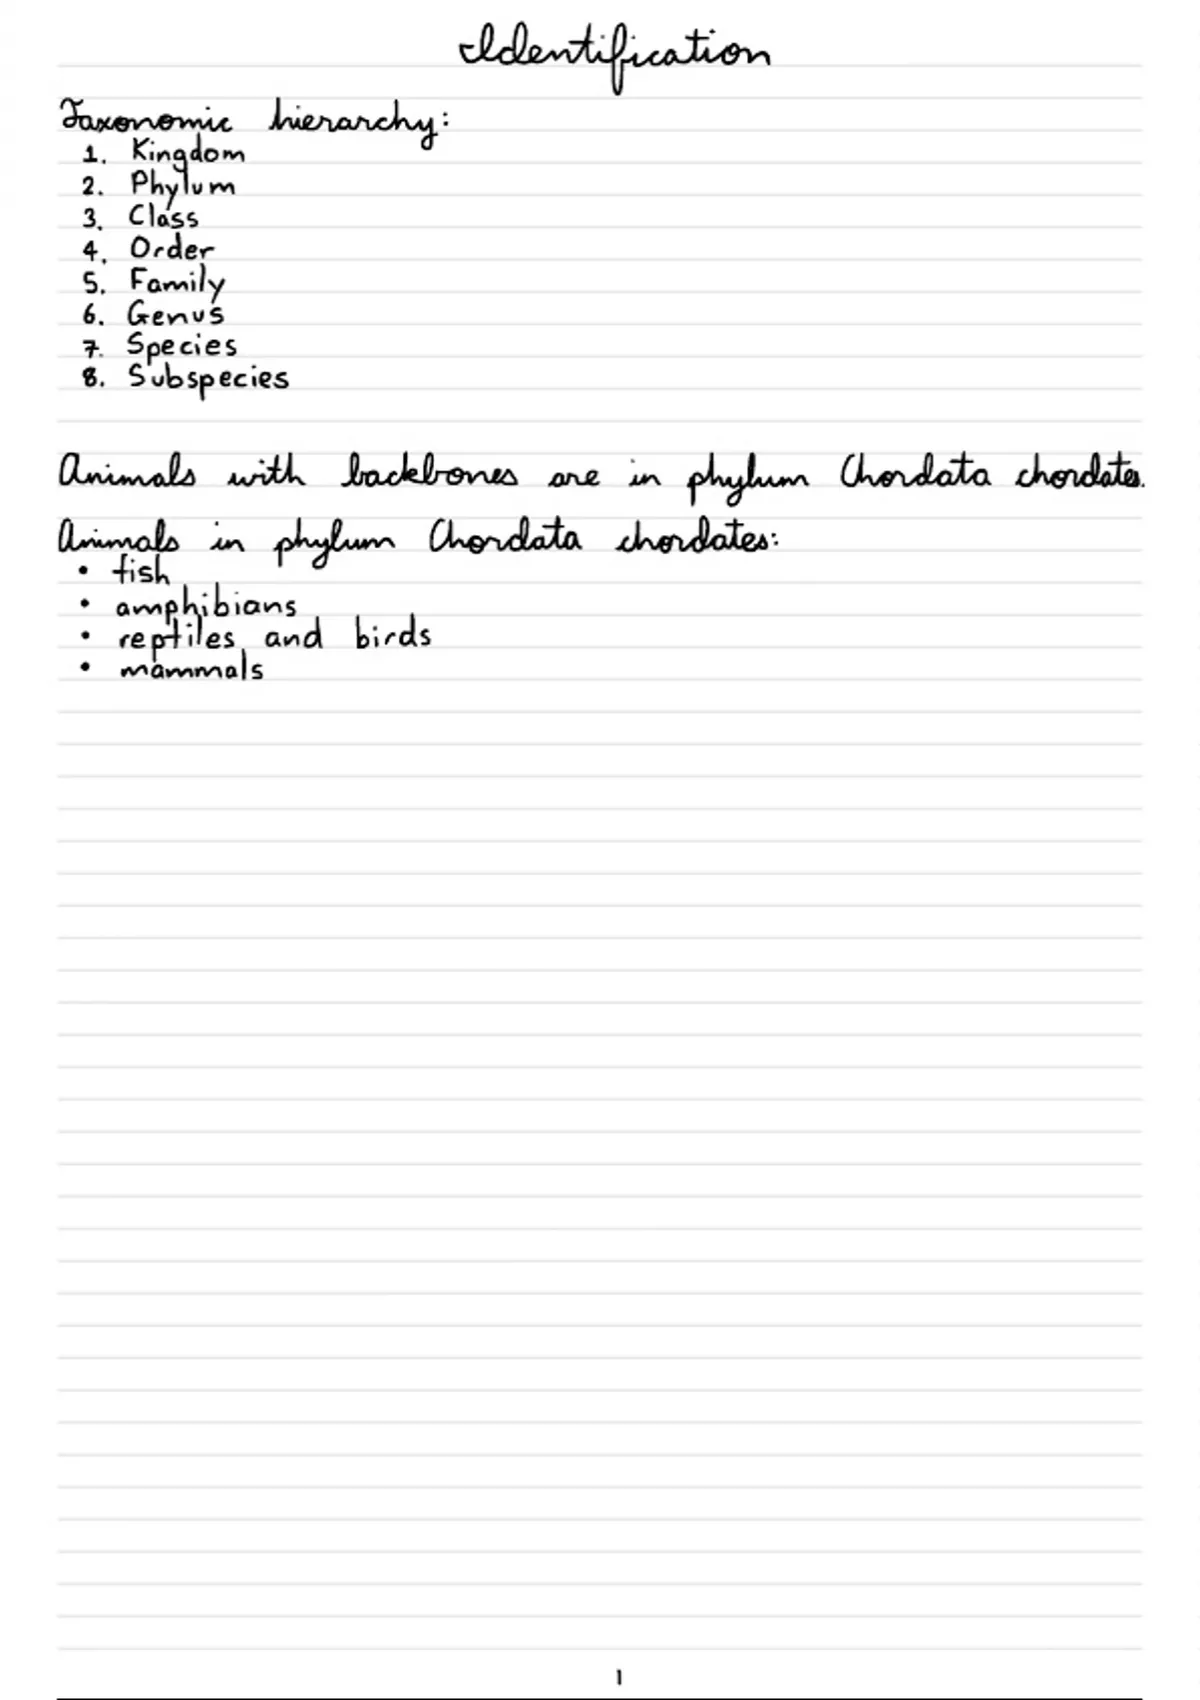 Identification
Taxonomic hierarchy:
1. Kingdom
2. Phylum
3. Class
4. Order
5. Family
6. Genus
7. Species
8. Subspecies
Animals with backbones are in phylum Chordata chordates.
Animals in phylum Chordata chordates:
• fish
• amphibians
• reptiles and birds
• mammals
1